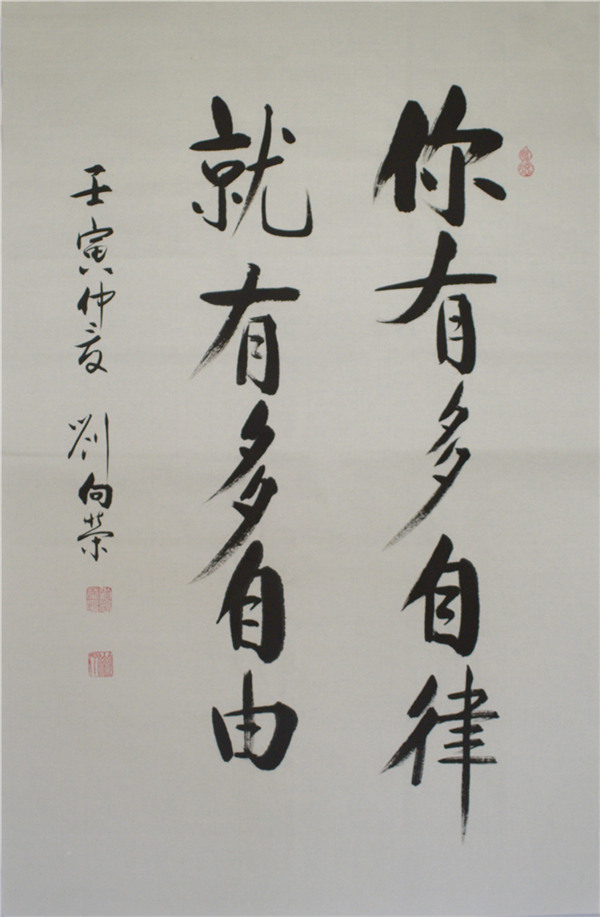 你有多自律
就有多自由
壬寅仲夏 劉向荣